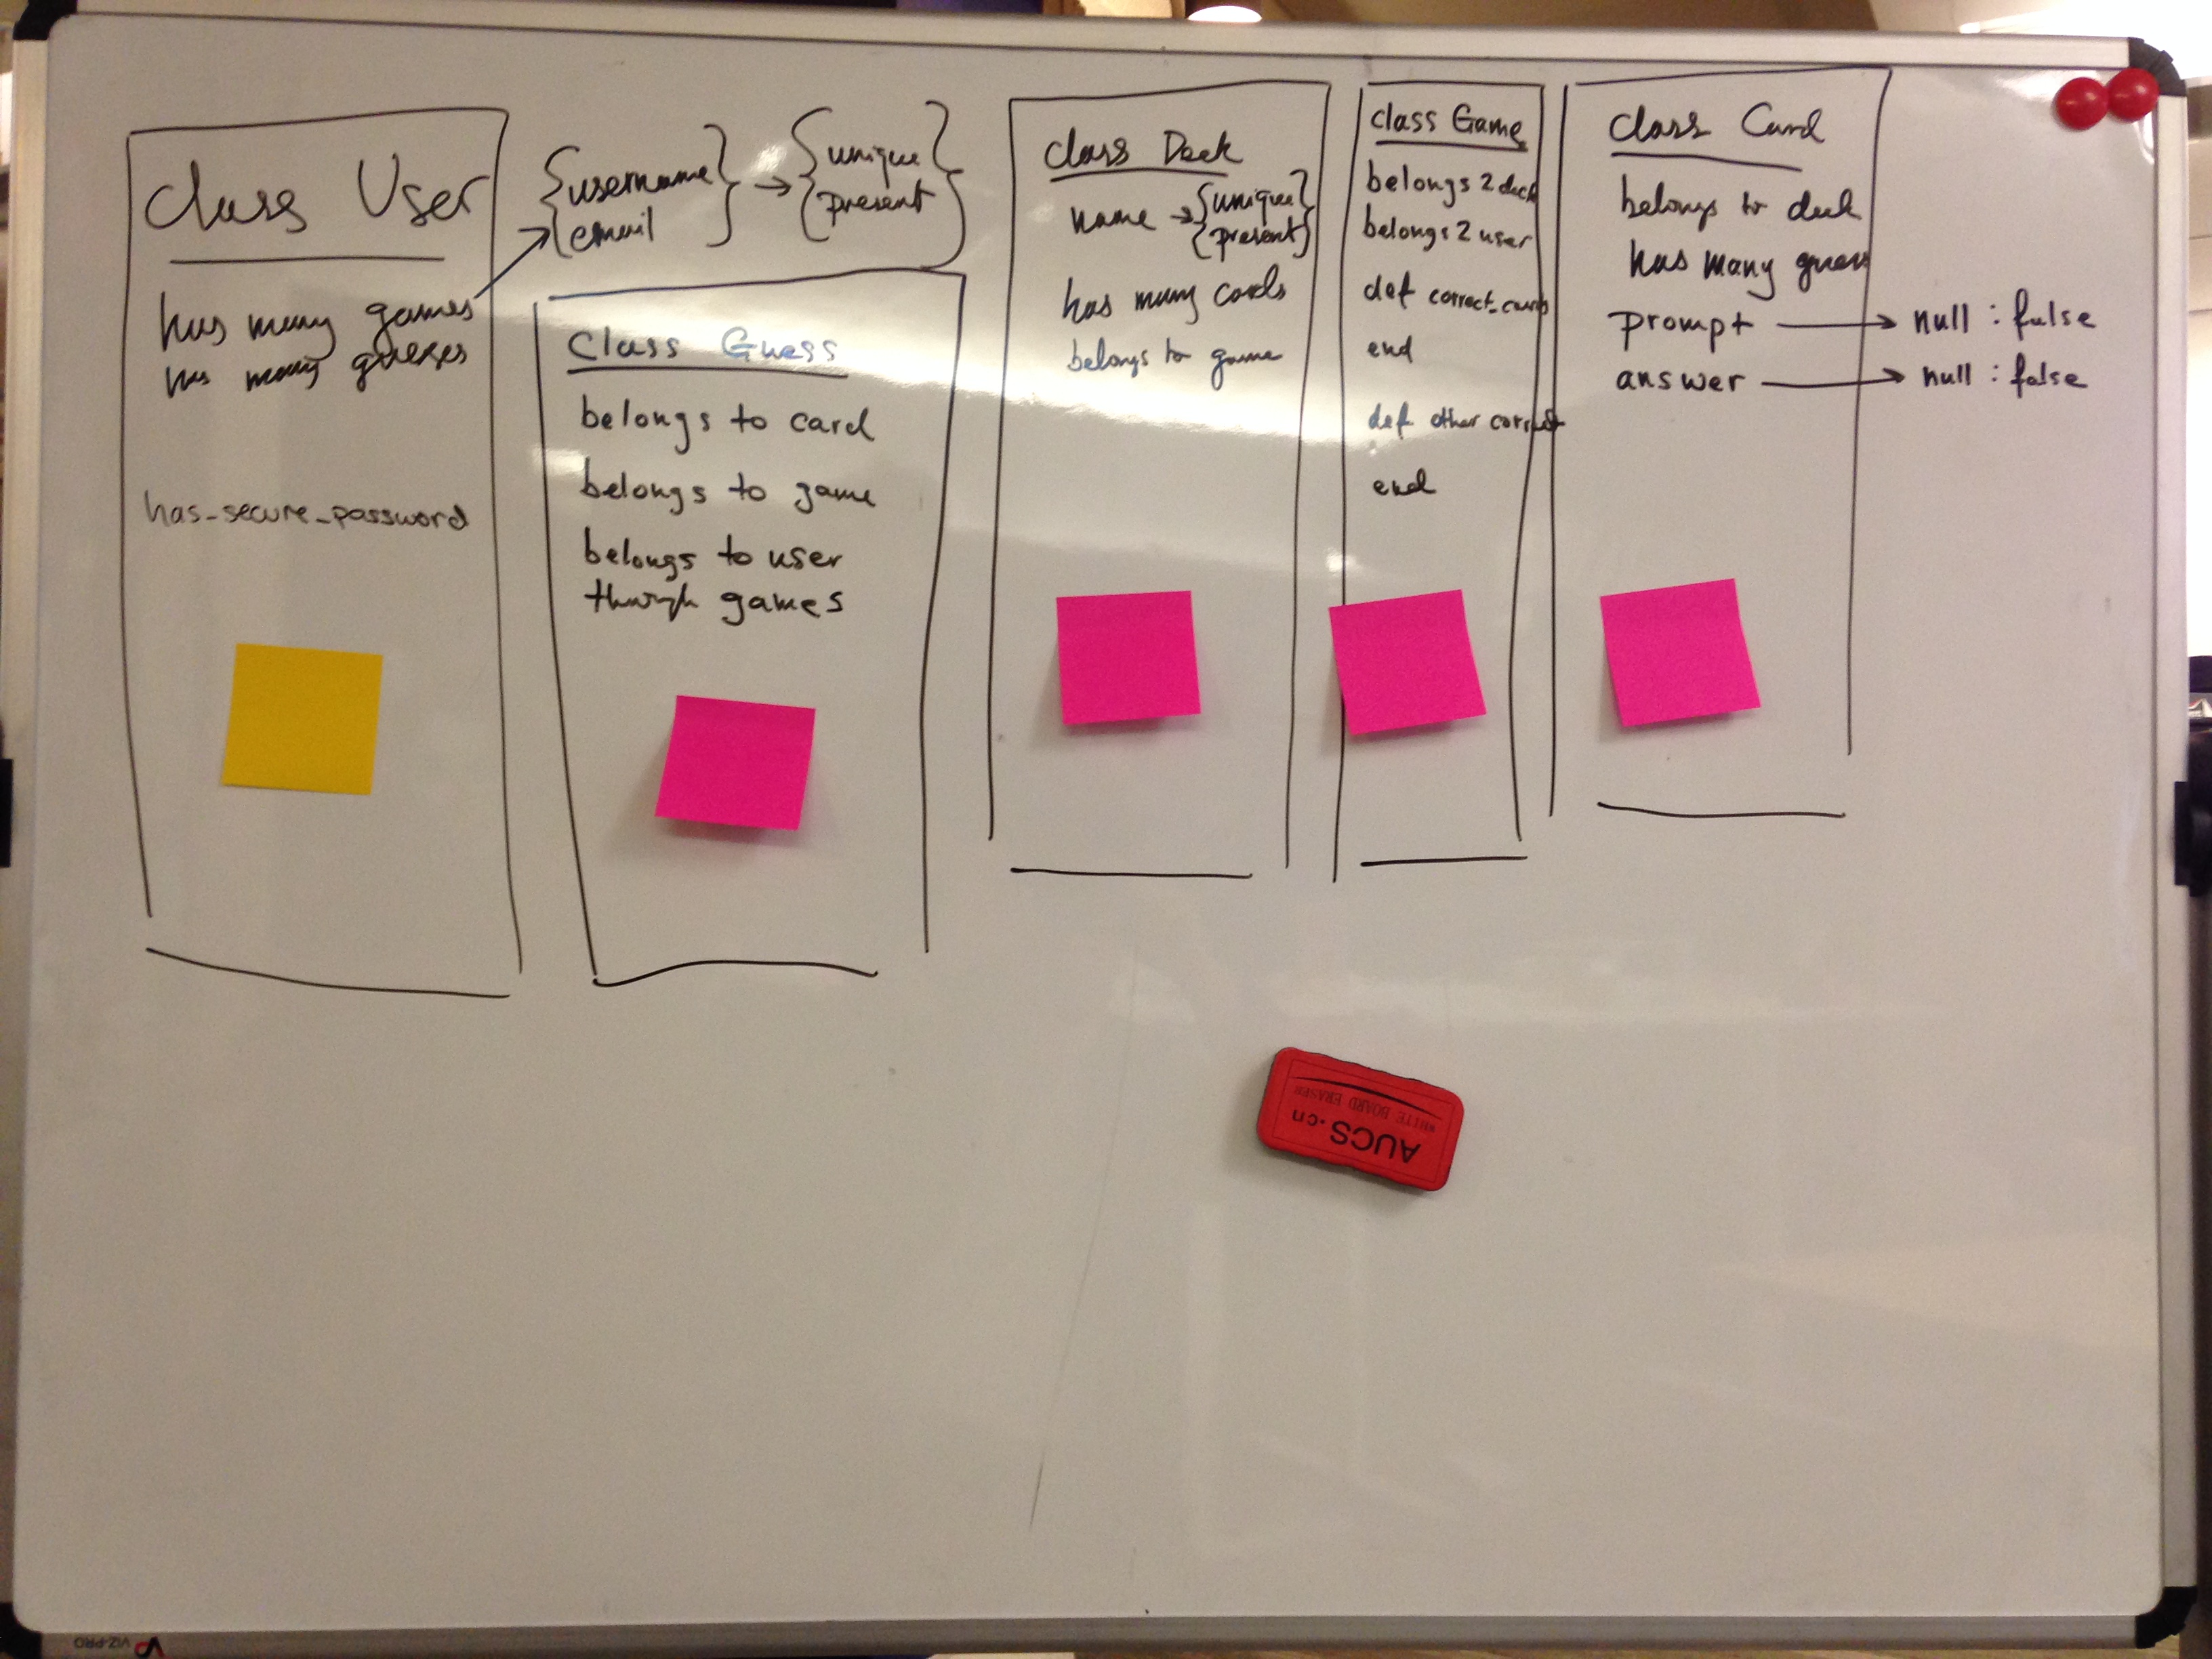 class User
has many games
has many guesses
has_secure_password
{username
email} → {unique
present}
Class Guess
belongs to card
belongs to game
belongs to user
through games
class Deck
name → {unique
present}
has many cards
belongs to game
class Game
belongs 2 deck
belongs 2 user
def correct_cards
end
def other correct
end
class Card
belongs to deck
has many guess
prompt → null : false
answer → null : false
AUCS.cn
WHITE BOARD ERASER
VIZ-PRO